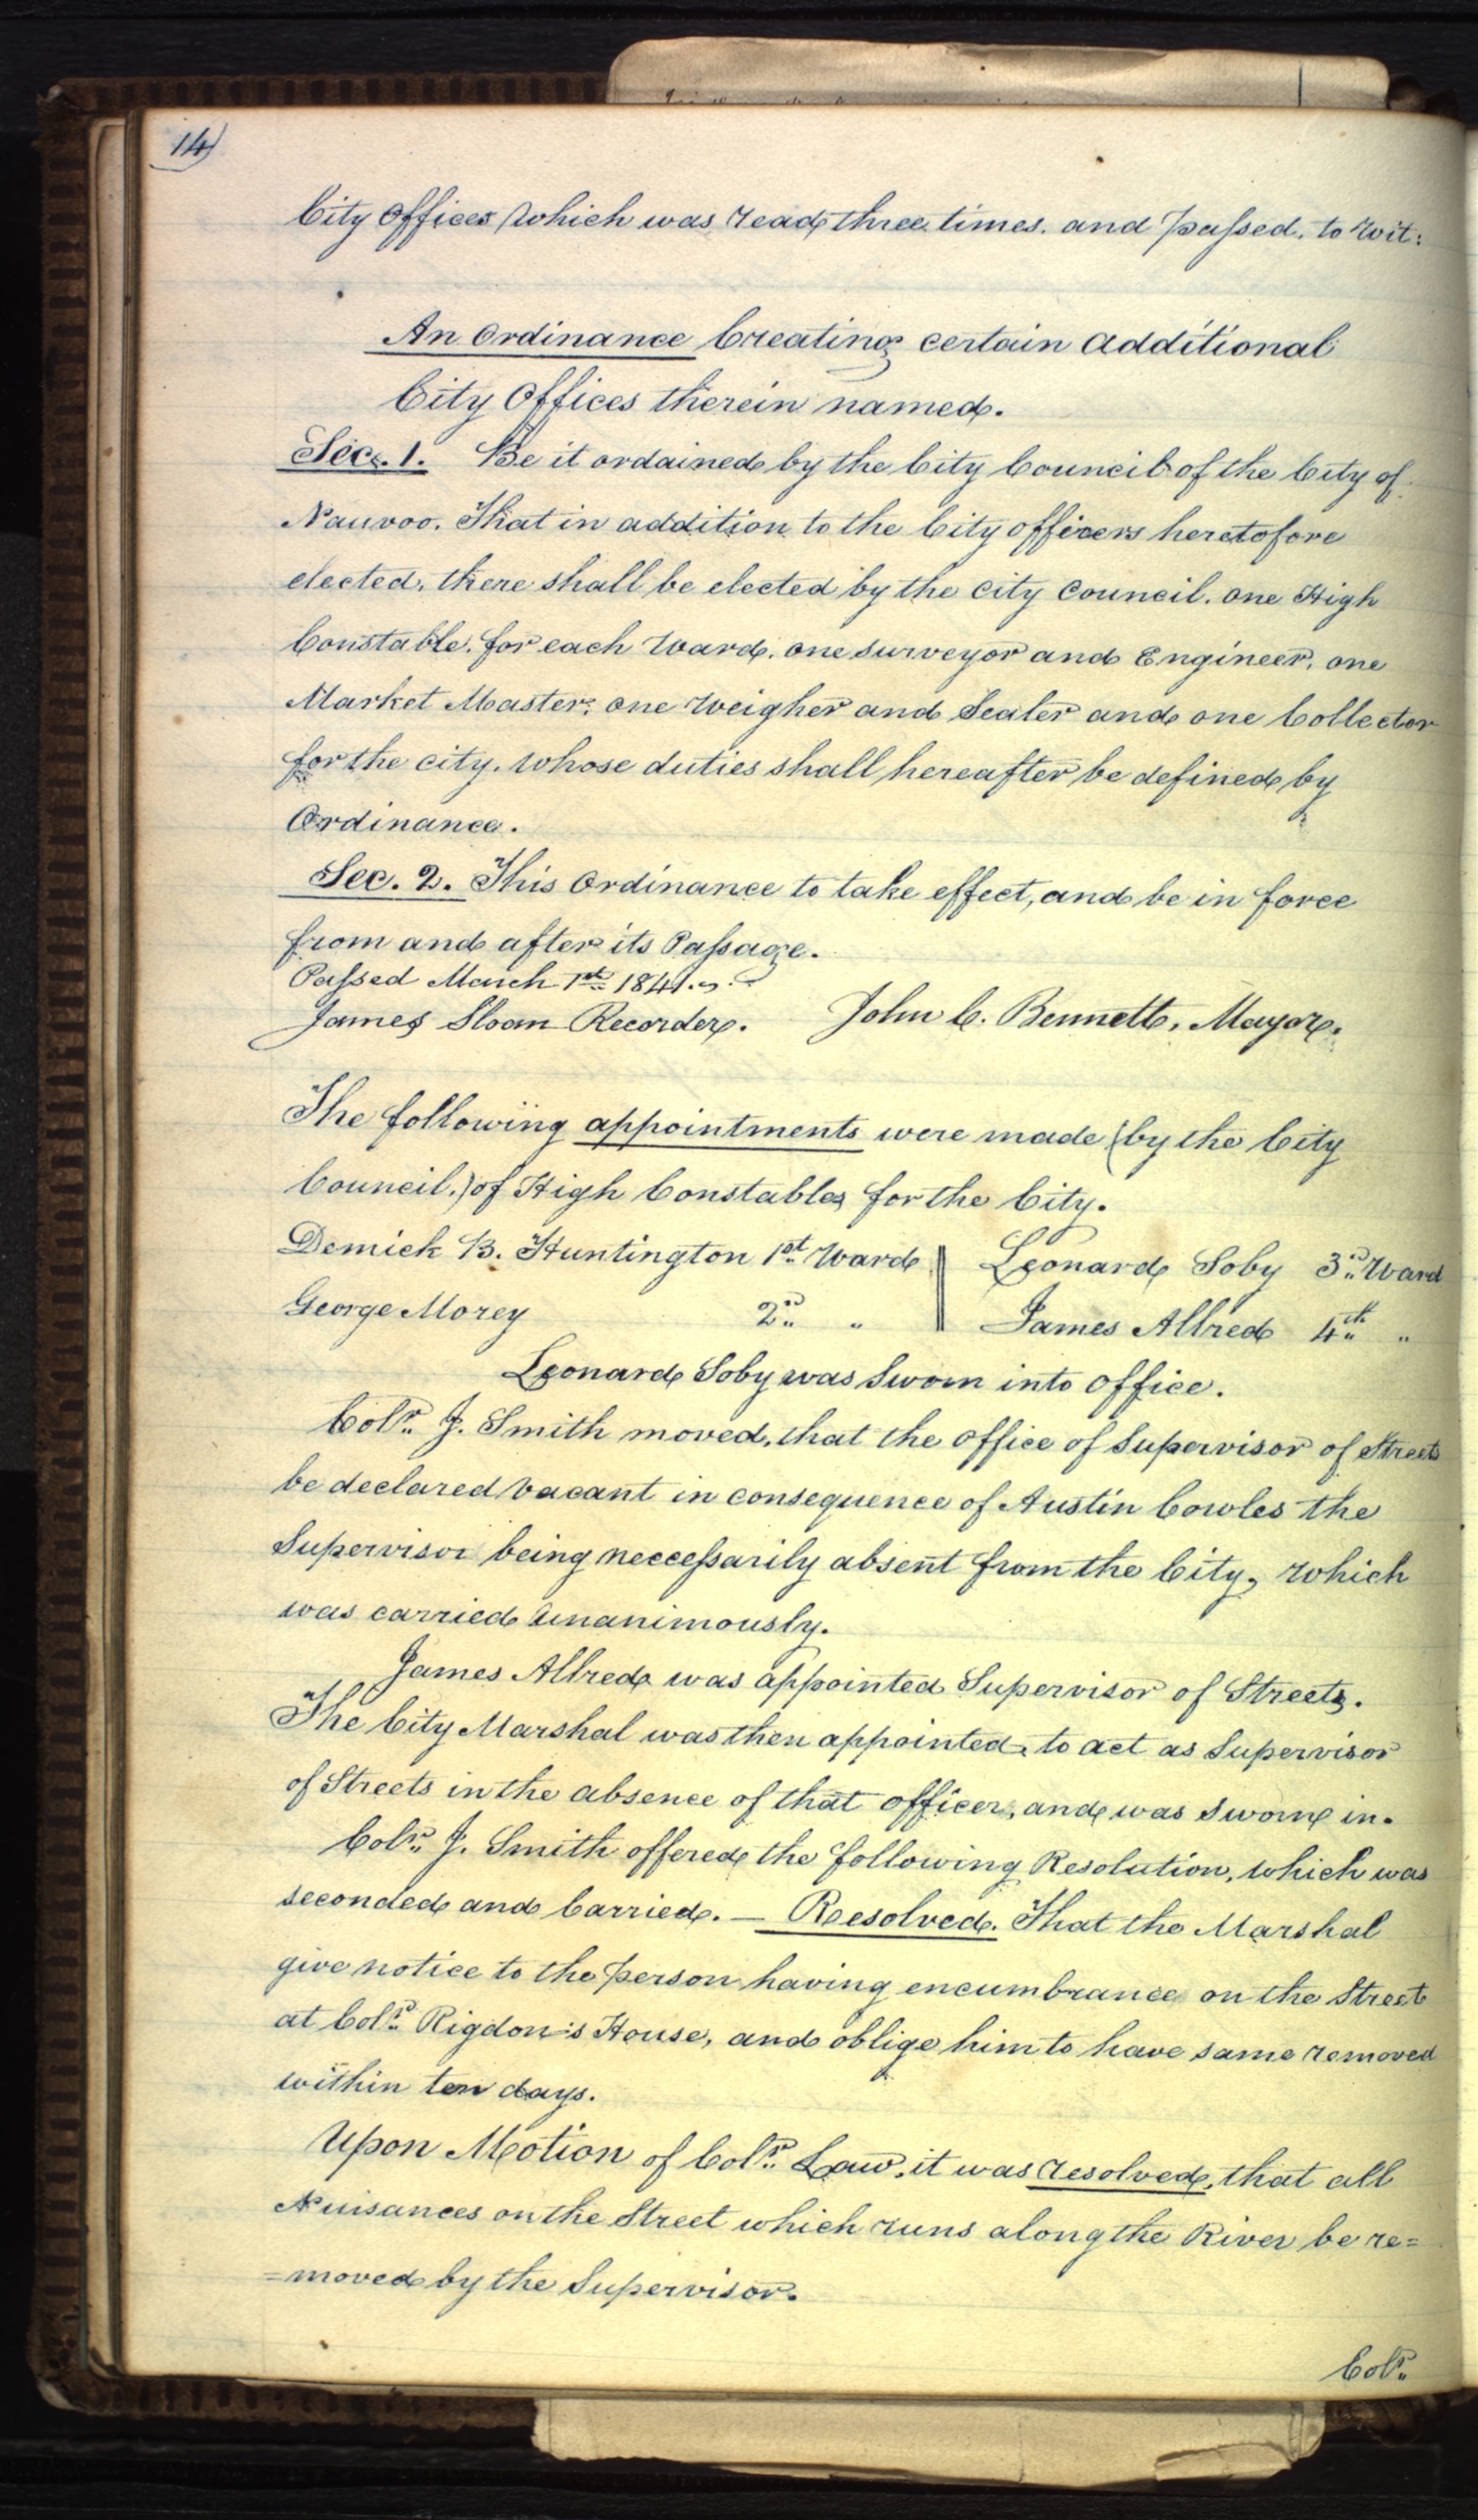 14)
City Offices, which was read three times. and passed. to wit:
An Ordinance Creating certain additional
City Offices therein named.
Sec. 1. Be it ordained by the City Council of the City of
Nauvoo. That in addition to the City officers heretofore
elected, there shall be elected by the city council. one High
Constable. for each Ward. one surveyor and Engineer, one
Market Master, one weigher and Sealer and one Collector
for the city. whose duties shall hereafter be defined by
Ordinance.
Sec. 2. This Ordinance to take effect, and be in force
from and after its Passage.
Passed March 1st 1841.
James Sloan Recorder. John C. Bennett, Mayor.
The following appointments were made (by the City
Council,) of High Constables for the City.
Demick B. Huntington 1st Ward || Leonard Soby 3rd Ward
George Morey 2nd " || James Allred 4th "
Leonard Soby was Sworn into office.
Colr. J. Smith moved, that the office of Supervisor of Streets
be declared vacant in consequence of Austin Cowles the
Supervisor being neccessarily absent from the City, which
was carried unanimously.
James Allred was appointed Supervisor of Streets.
The City Marshal was then appointed, to act as Supervisor
of Streets in the absence of that officer, and was sworn in.
Colr. J. Smith offered the following Resolution, which was
seconded and Carried. — Resolved. That the Marshal
give notice to the person having encumbrance on the Street
at Colr. Rigdon's House, and oblige him to have same removed
within ten days.
Upon Motion of Colr. Law, it was resolved, that all
Nuisances on the Street which runs along the River be re=
=moved by the Supervisor.
Colr.